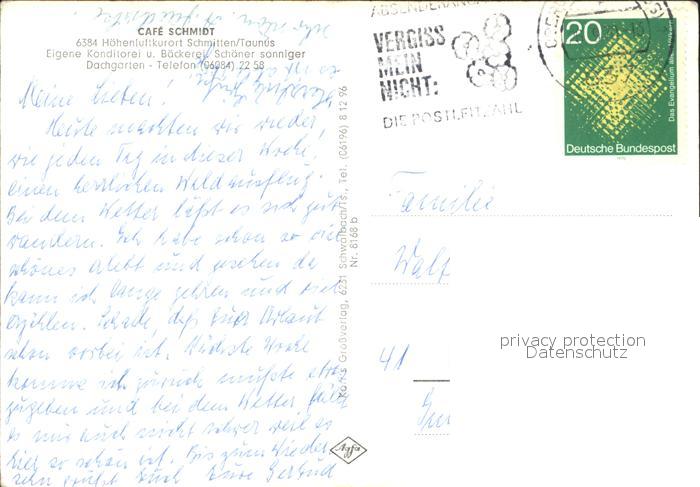 CAFÉ SCHMIDT
6384 Höhenluftkurort Schmitten/Taunus
Eigene Konditorei u. Bäckerei - Schöner sonniger
Dachgarten - Telefon (06084) 22 58
Meine Lieben!
Heute machten wir wieder,
wie jeden Tag in dieser Woche,
einen herrlichen Waldausflug.
Bei dem Wetter läßt es sich gut
wandern. Ich habe schon so viel
schönes erlebt und gesehen da
kann ich lange zehren und viel
erzählen. Schade, daß Euer Urlaub
schon vorbei ist. Nächste Woche
komme ich zurück
zugeben und bei dem Wetter fällt
es mir auch nicht schwer weil es
hier so schön ist. Bis zum Wieder-
sehn grüßt Euch Eure Gertrud
Karl's Großverlag, 6231 Schwalbach/Ts., Tel. (06196) 8 12 96
Nr. 8168 b
Agfa
VERGISS
MEIN
NICHT:
DIE POSTLEITZAHL
20
Das Evangelium
Deutsche Bundespost
1970
Familie
Walf
41
privacy protection
Datenschutz